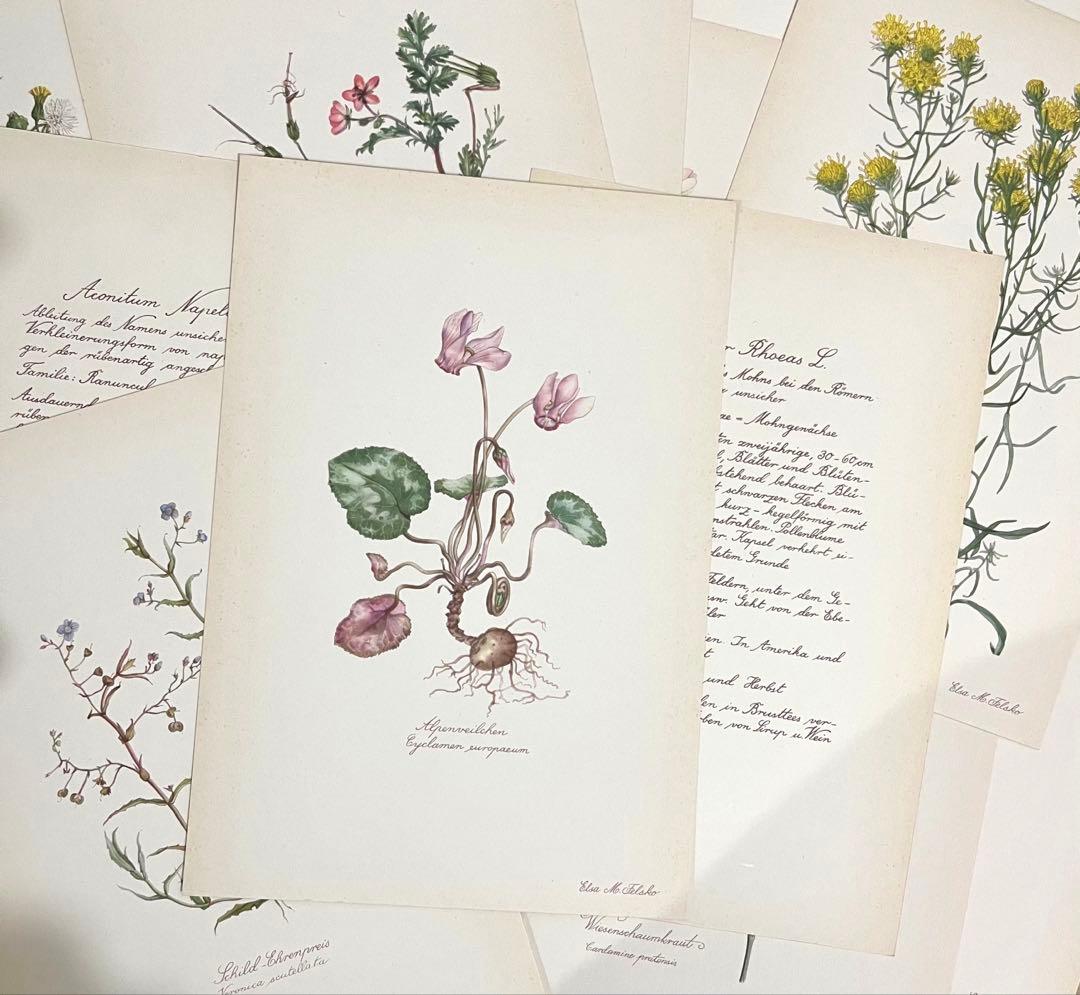 Aconitum Napel
Ableitung des Namens unsiche
Verkleinerungsform von nap
gen der rübenartig angesch
Familie: Ranuncul
Ausdauernd
rüben
r Rhoeas L.
s Mohns bei den Römern
r unsicher
ze = Mohngewächse
en zweijährige, 30-60 cm
l, Blätter und Blüten-
bstehend behaart. Blü-
t schwarzen Flecken am
kurz-kegelförmig mit
nstrahlen. Pollenblume
ar. Kapsel verkehrt ei-
detem Grunde
Feldern, unter dem Ge-
usw. Geht von der Ebe-
ler
en. In Amerika und
t
und Herbst
en in Brusttees ver-
ben von Sirup u. Wein
Elsa M. Felsko
Alpenveilchen
Cyclamen europaeum
Elsa M. Felsko
Wiesenschaumkraut
Cardamine pratensis
Schild-Ehrenpreis
Veronica scutellata